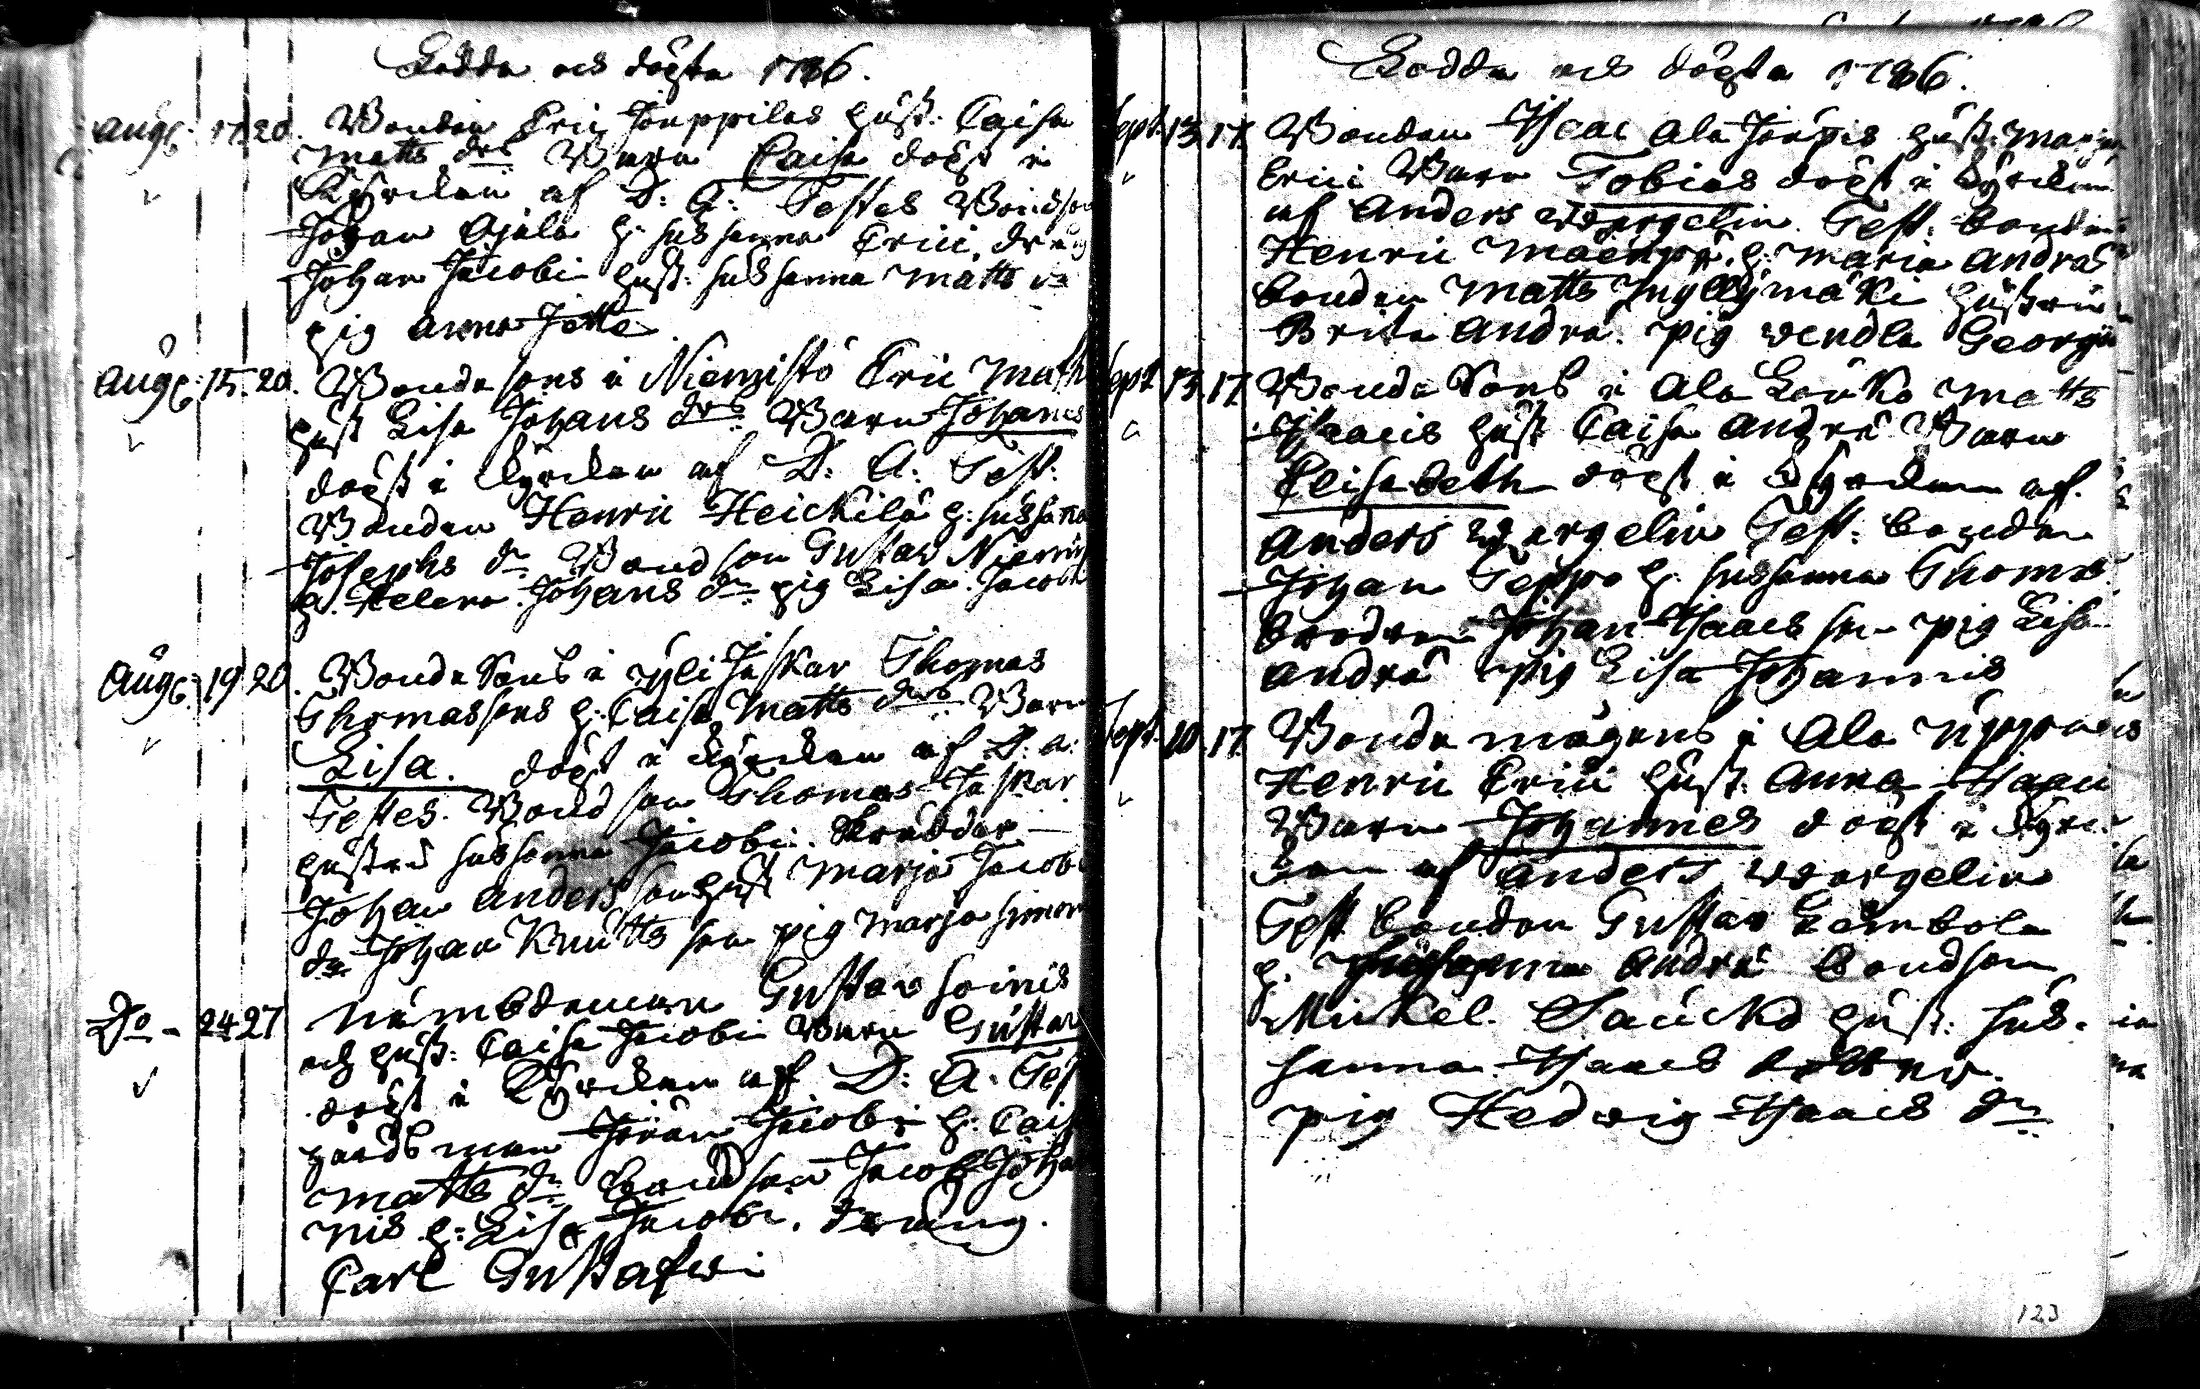 Födda och döpta 1786.
Aug: 17. 20. Bonden Eric Jouppilas hust: Caisa
Matts drs Barn Caisa döpt i
Kyrckan af D: A: Testes Bondson
Johan Ojala h: Sussanna Erici, dräng
Johan Jacobi hust: Sussanna Matts dr
pig Anna
Aug: 15. 20. Bonde sons i Niemistö Eric Math
hust Lisa Johans drs Barn Johannes
döpt i Kyrckan af D: A: Test:
Bonden Henric Heickilä h: Sussanna
Josephs dr Bondson Gustav Niemist
h. Helena Johans dr pig Lisa Jacobi
Aug: 19 20. Bonde Sons i Yli Jaskar Thomas
Thomassons h: Caisa Matts drs Barn
Lisa. döpt i Kyrckan af D: A:
Testes. Bondson Thomas Jaskar
hustru Sussanna Jacobi. Skräddar
Johan Andersson hust Marja Jacobi
dr Johan Knutts son pig Marja Simon
Do - 24 27 Nämbdeman Gustav Soinis
och hust: Caisa Jacobi Barn Gustav
döpt i Kyrckan af D: A. Test
gårdsman Jöran Jacobi h: Caisa
Matts dr Bondson Jacob Johan
nis h: Lisa Jacobi. dräng.
Carl Gustafwi
Födda och döpta 1786.
Sept: 13 17. Bonden Isac Ala Jäÿpis hust: Marja
Erici Barn Tobias döpt i Kyrckan
af Anders Wargelin. Test: bonden
Henric Mäenpä. h: Maria Andrae
bonden Matts Ingellymäki hustru
Brita Andrae. pig Wendla Georgii
Sept 13 17. Bonde Sons i Ala Louko Matts
Isaacis hust Caisa Andrae Barn
Elisabeth döpt i Kyrckan af.
Anders Wargelin Test: bonden
Johan Teppo h: Sussanna Thomas
brodren Johan Isaacs son pig Lisa
Andrae pig Lisa Johannis
Sept. 10 17 Bonde mågens i Ala
Henric Erici hust: Anna Isaaci
Barn Johannes döpt i Kyrc
kan af Anders Wargelin
Test bonden Gustav Lambola
h. Andrae bondson
Mickel. Saucko hust: Sus-
sanna. Isaacs dotter.
pig Hedwig Isaacs dr
123